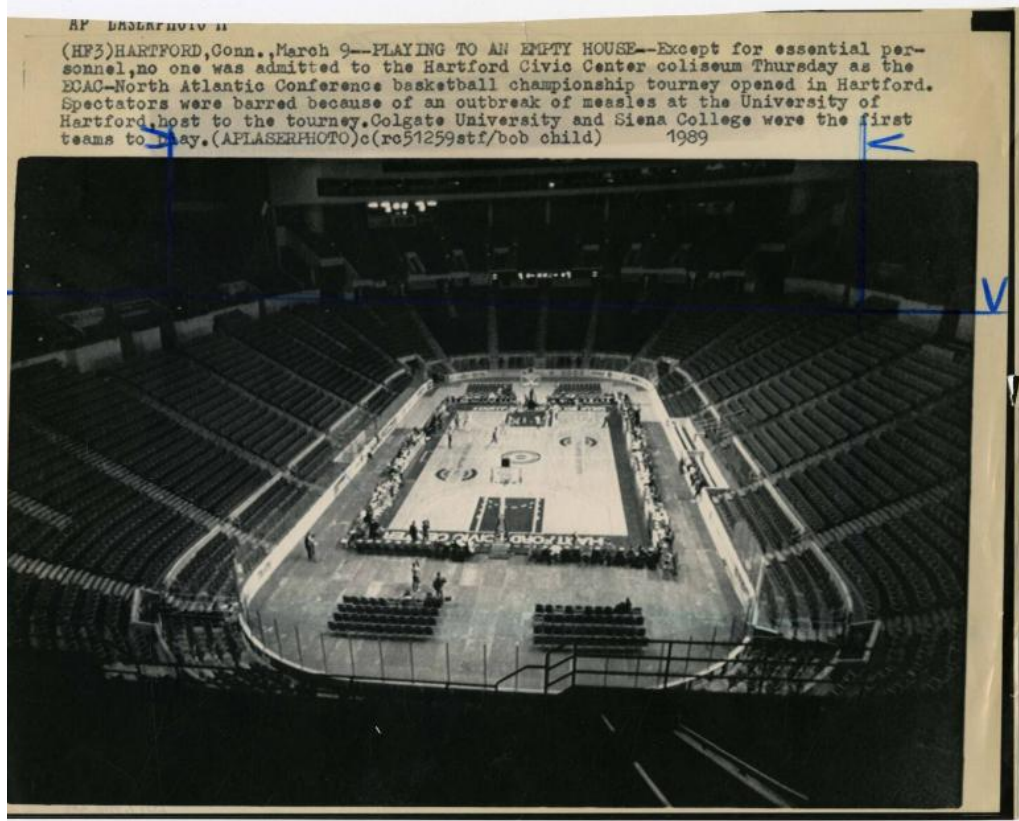 AP LASERPHOTO
(HF3)HARTFORD,Conn.,March 9--PLAYING TO AN EMPTY HOUSE--Except for essential per-
sonnel,no one was admitted to the Hartford Civic Center coliseum Thursday as the
ECAC-North Atlantic Conference basketball championship tourney opened in Hartford.
Spectators were barred because of an outbreak of measles at the University of
Hartford,host to the tourney.Colgate University and Siena College were the first
teams to play.(APLASERPHOTO)c(rc51259stf/bob child) 1989
HARTFORD CIVIC CE